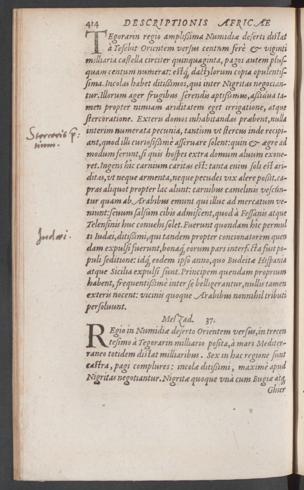 414 DESCRIPTIONIS AFRICAE
TEgorarin regio amplissima Numidiæ deserti distat
à Tesebit Orientem versus centum ferè & viginti
milliaria castella circiter quinquaginta, pagos autem plus-
quam centum numerat: estq́; dactylorum copia opulentis-
sima. Incolas habet ditissimos, qui inter Nigritas negocian-
tur. Illorum ager frugibus serendis aptissimus, assidua ta-
men propter nimiam ariditatem eget irrigatione, atque
stercoratione. Exteris domus inhabitandas præbent, nulla
interim numerata pecunia, tantùm vt stercus inde recipi-
ant, quod illi curiosissimè asseruare solent: quin & ægre ad
modum ferunt, si quis hospes extra domum aluum exone-
ret. Ingens hic carnium caritas est: tanta enim soli est ari-
ditas, vt neque armenta, neque pecudes vix alere possit, ca-
pras aliquot propter lac alunt: carnibus camelinis vescun-
tur quam ab Arabibus emunt qui illuc ad mercatum ve-
niunt: seuum salsum cibis admiscent, quod à Fessanis atque
Telensinis huc conuehi solet. Fuerunt quondam hîc permul
ti Iudæi, ditissimi, qui tandem propter concionatorem quen
dam expulsi fuerunt, bonaq́; eorum pars interf. cta fuit po-
puli seditione: idq́; eodem ipso anno, quo Iudæi è Hispania
atque Sicilia expulsi sunt. Principem quendam proprium
habent, frequentissimè inter se belligerantur, nullis tamen
exteris nocent: vicinis quoque Arabibus nonnihil tributi
persoluunt.
Meszad. 37.
REgio in Numidiæ deserto Orientem versus, in trecen
tesimo à Tegorarin milliario posita, à mari Mediter-
raneo totidem distat milliaribus. Sex in hac regione sunt
castra, pagi complures: incolæ ditissimi, maximè apud
Nigritas negotiantur. Nigritæ quoque vnà cum Bugiæ atq́;
Gheer
Stercoris
Judæi.